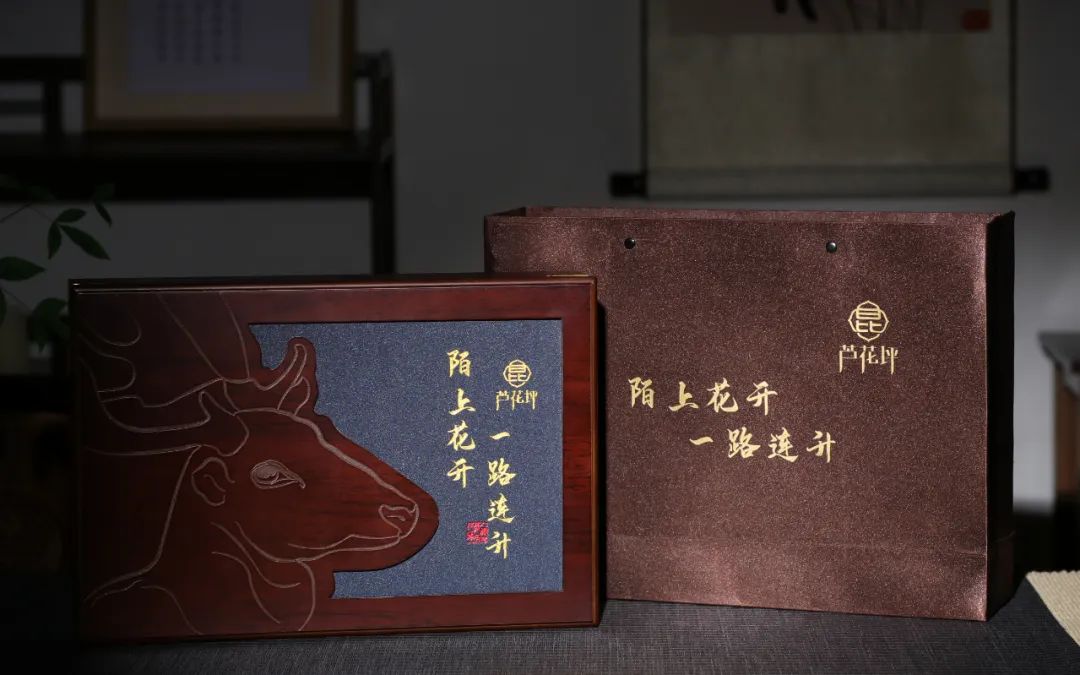 陌上花开
昆
芦花坪
一路连升
昆
芦花坪
陌上花开
一路连升